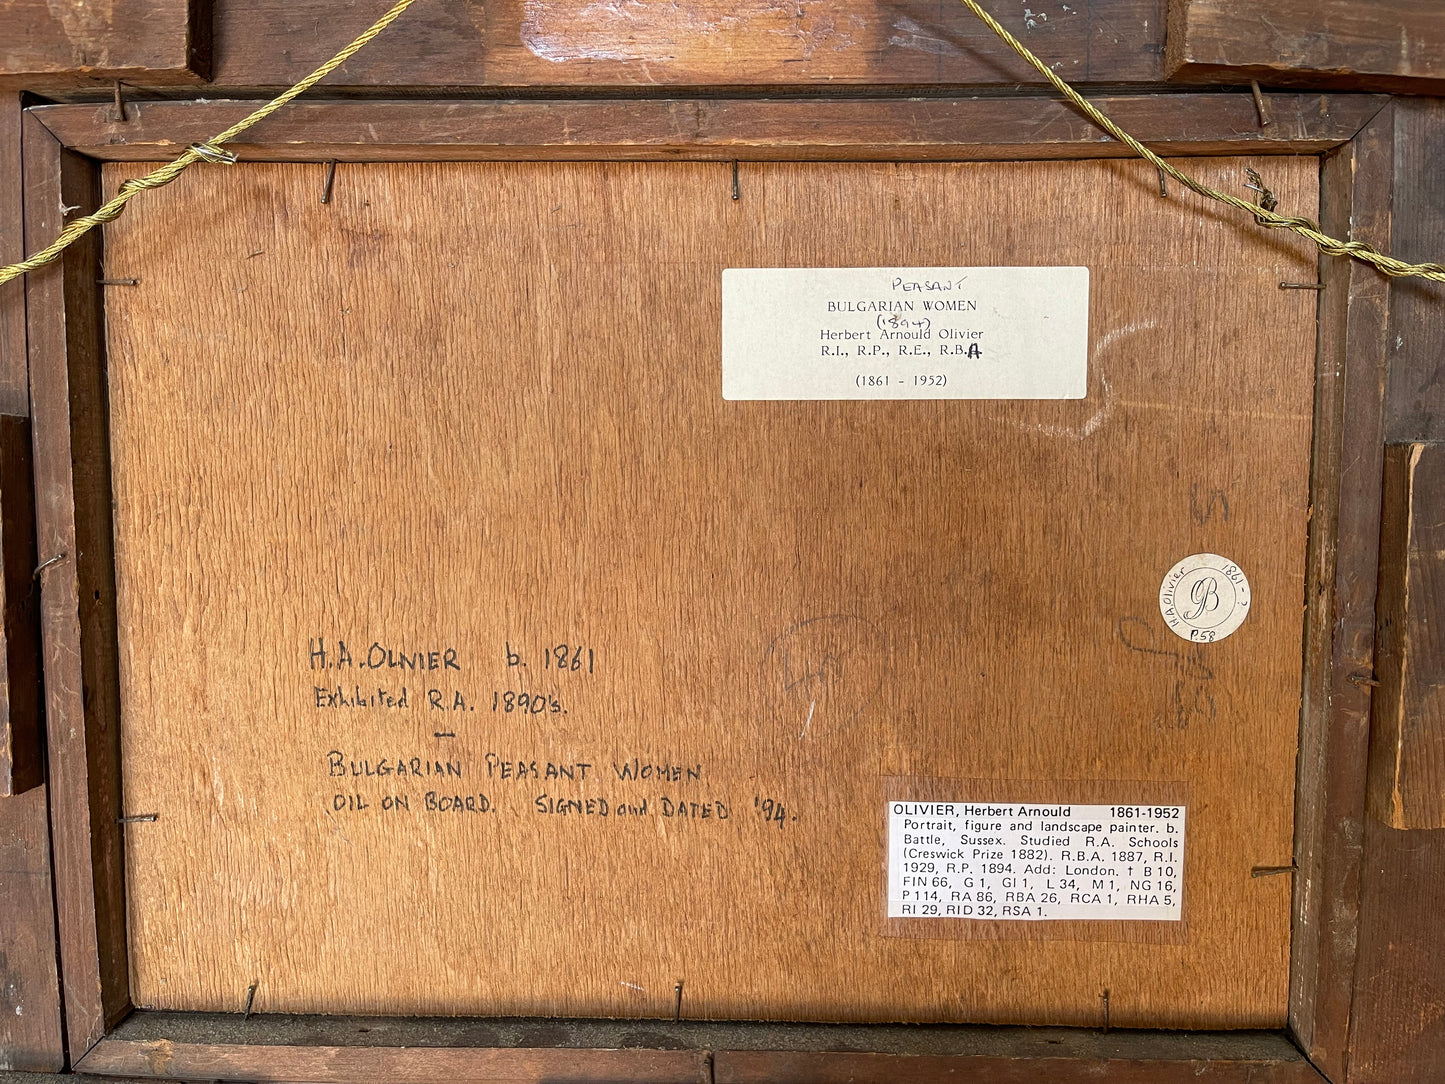 PEASANT
BULGARIAN WOMEN
(1894)
Herbert Arnould Olivier
R.I., R.P., R.E., R.B.A
(1861 - 1952)
H.A.Olivier 1861-
B
P.58
H.A.OLIVIER b. 1861
Exhibited R.A. 1890's.
–
BULGARIAN PEASANT WOMEN
OIL ON BOARD. SIGNED and DATED '94.
OLIVIER, Herbert Arnould 1861-1952
Portrait, figure and landscape painter. b.
Battle, Sussex. Studied R.A. Schools
(Creswick Prize 1882). R.B.A. 1887, R.I.
1929, R.P. 1894. Add: London. † B 10,
FIN 66, G 1, GI 1, L 34, M 1, NG 16,
P 114, RA 86, RBA 26, RCA 1, RHA 5,
RI 29, RID 32, RSA 1.